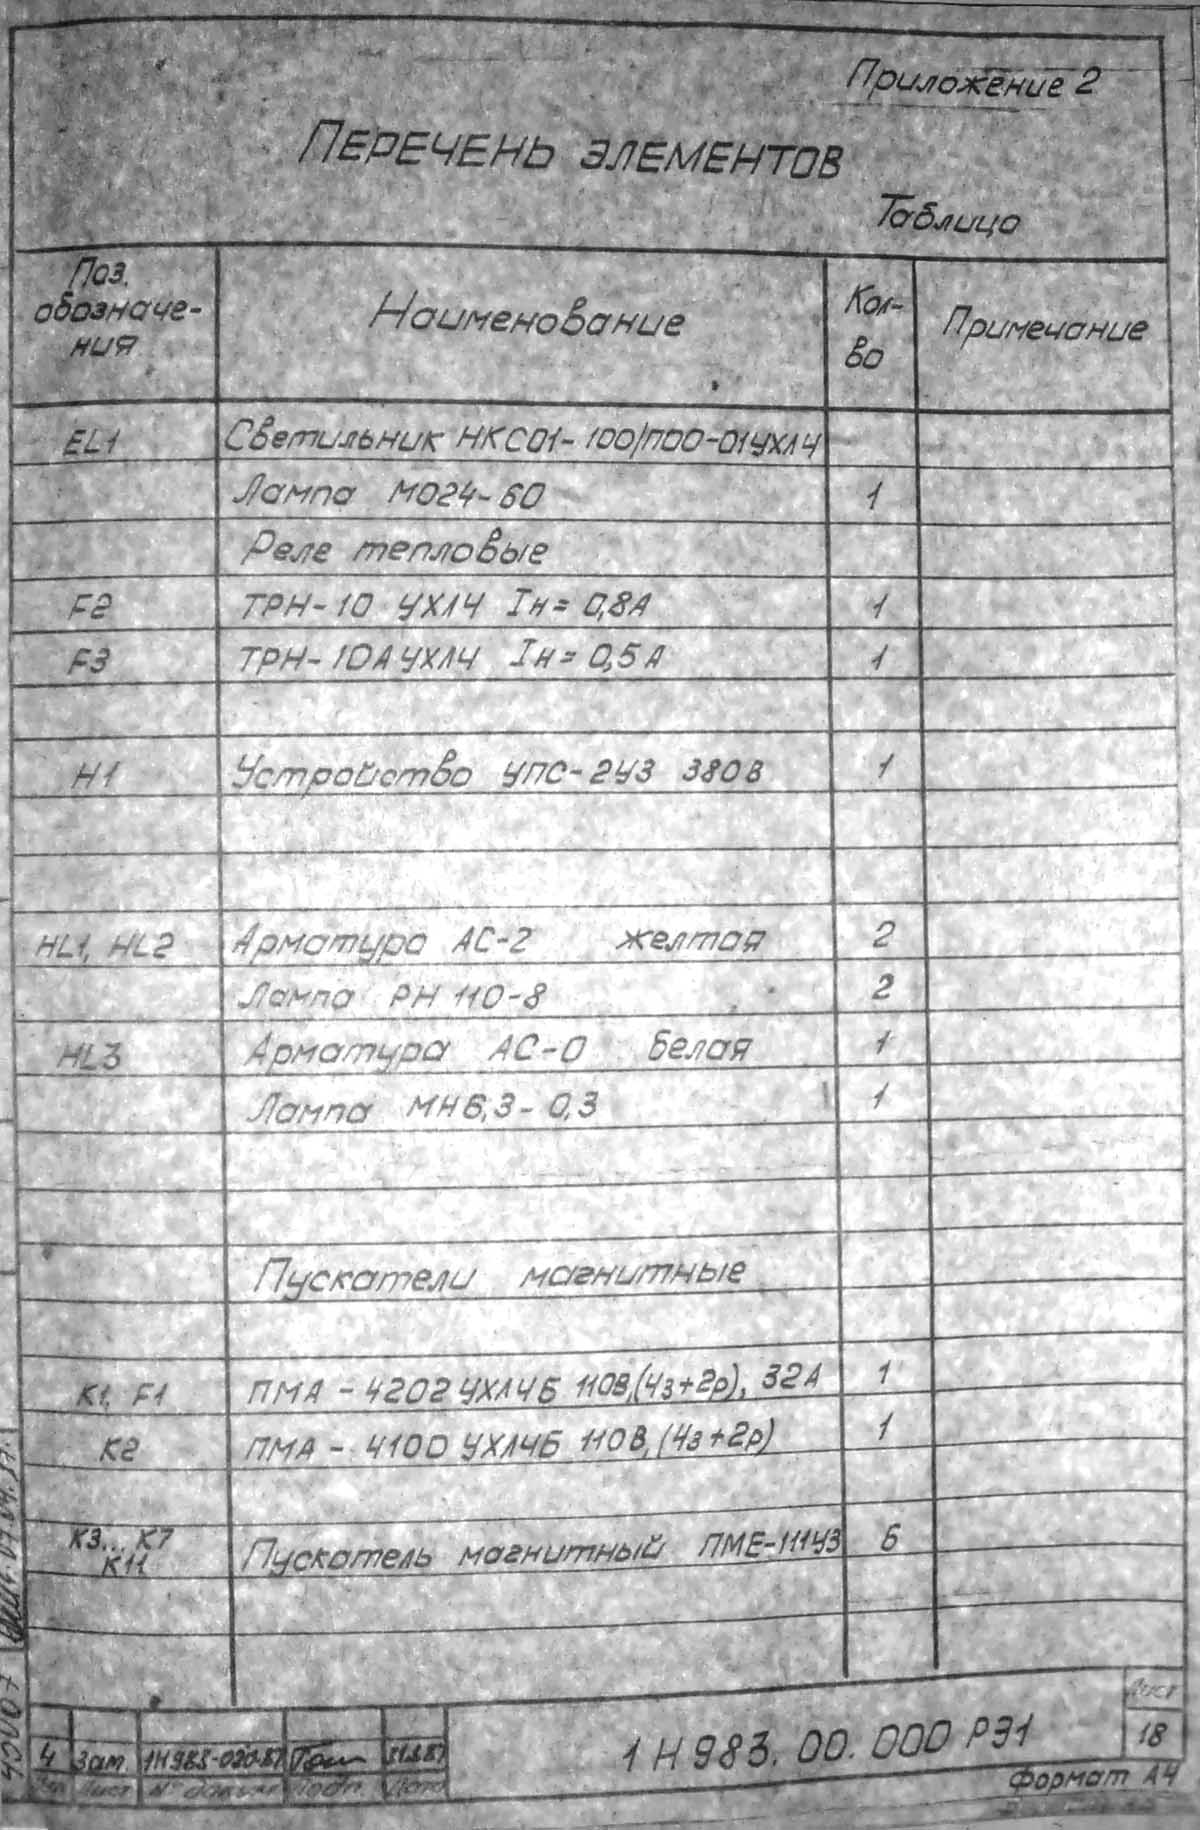 Приложение 2
ПЕРЕЧЕНЬ ЭЛЕМЕНТОВ
Таблица
Поз. обозначе-ния Наименование Кол-во Примечание
EL1 Светильник НКС01-100/П00-01УХЛ4
Лампа МО24-60 1
Реле тепловые
F2 ТРН-10 УХЛ4 Iн=0,8А 1
F3 ТРН-10А УХЛ4 Iн=0,5А 1
H1 Устройство УПС-2У3 380В 1
HL1, HL2 Арматура АС-2 желтая 2
Лампа РН 110-8 2
HL3 Арматура АС-0 белая 1
Лампа МН6,3-0,3 1
Пускатели магнитные
K1, F1 ПМА-4202 УХЛ4Б 110В,(4з+2р), 32А 1
K2 ПМА-4100 УХЛ4Б 110В,(4з+2р) 1
K3...K7
K11 Пускатель магнитный ПМЕ-111У3 6
Лист
4 Зам. 1Н983-030-87 1Н983.00.000 РЭ1 18
Лист № докум. Подп. Дата
Формат А4